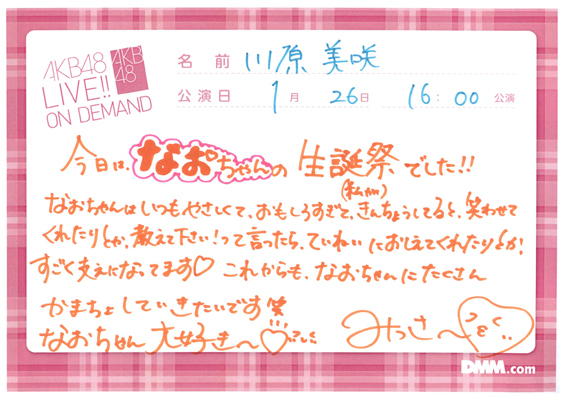 AKB48
LIVE!!
ON DEMAND
AKB
48
名前 川原美咲
公演日 1月 26日 16:00 公演
今日は、なおちゃんの生誕祭でした!!
なおちゃんはいつもやさしくて、おもしろすぎて、(私が)きんちょうしてると、笑わせて
くれたりとか、教えて下さい!って言ったら、ていねいにおしえてくれたりとか!
すごく支えになってます♡ これからも、なおちゃんにたくさん
かまちょしていきたいです笑
なおちゃん大好き〜♡
みっさ〜
DMM.com